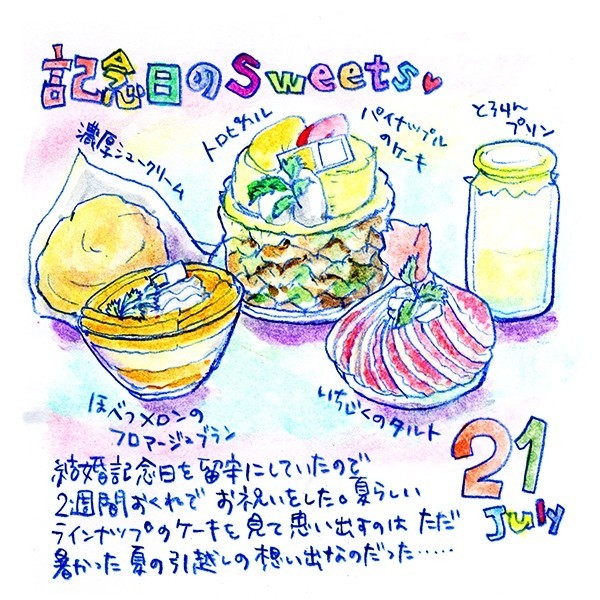 記念日のSweets
濃厚シュークリーム
トロピカル
パイナップル
のケーキ
とろりん
プリン
ほべつメロンの
フロマージュブラン
いちじくのタルト
21
July
結婚記念日を留守にしていたので
2週間おくれでお祝いをした。夏らしい
ラインナップのケーキを見て思い出すのはただ
暑かった夏の引越しの想い出なのだった……